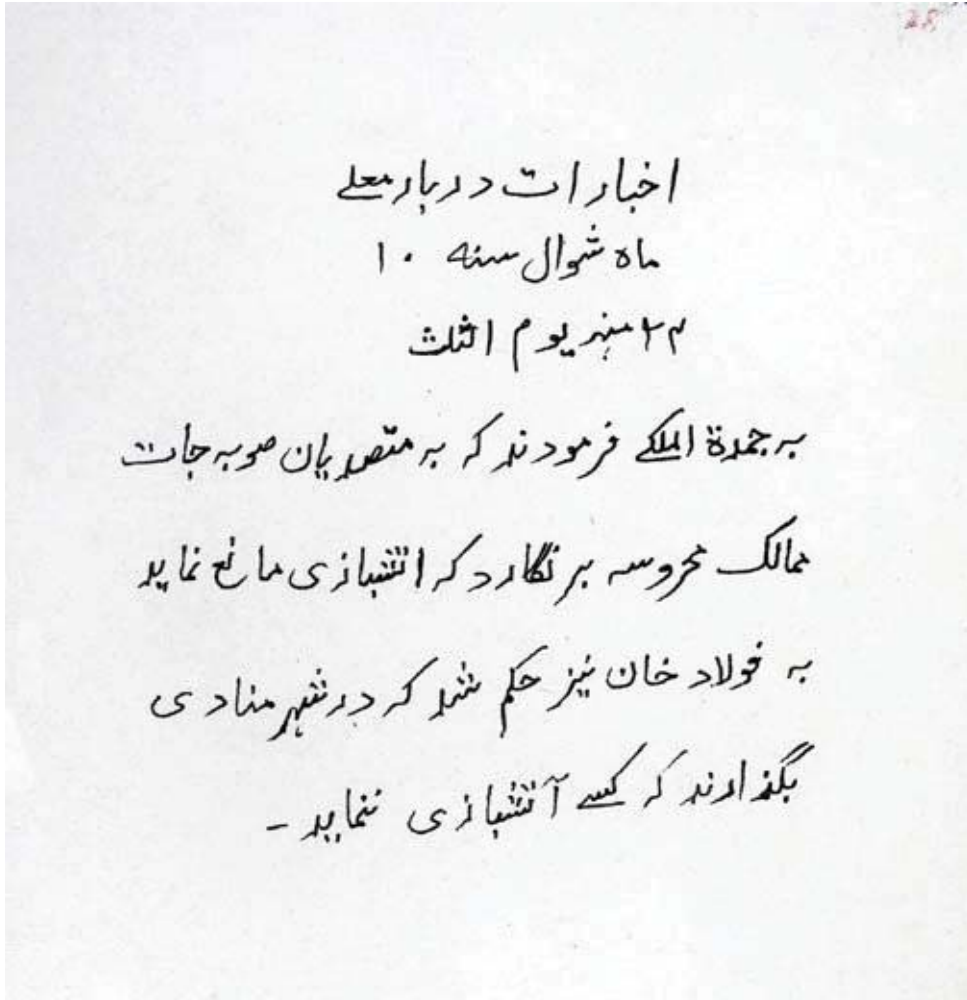 28
اخبارات دربار معلے
ماه شوال سنه ۱۰
۲۴ شہر یوم الثلث
به جمدة الملکے فرمودند که به متصدیان صوبه جات
ممالک محروسه بر نگارد که اتشبازی مانع نماید
به فولاد خان نیز حکم شد که در شہر منادی
بگذارند که کسے آتشبازی ننماید -